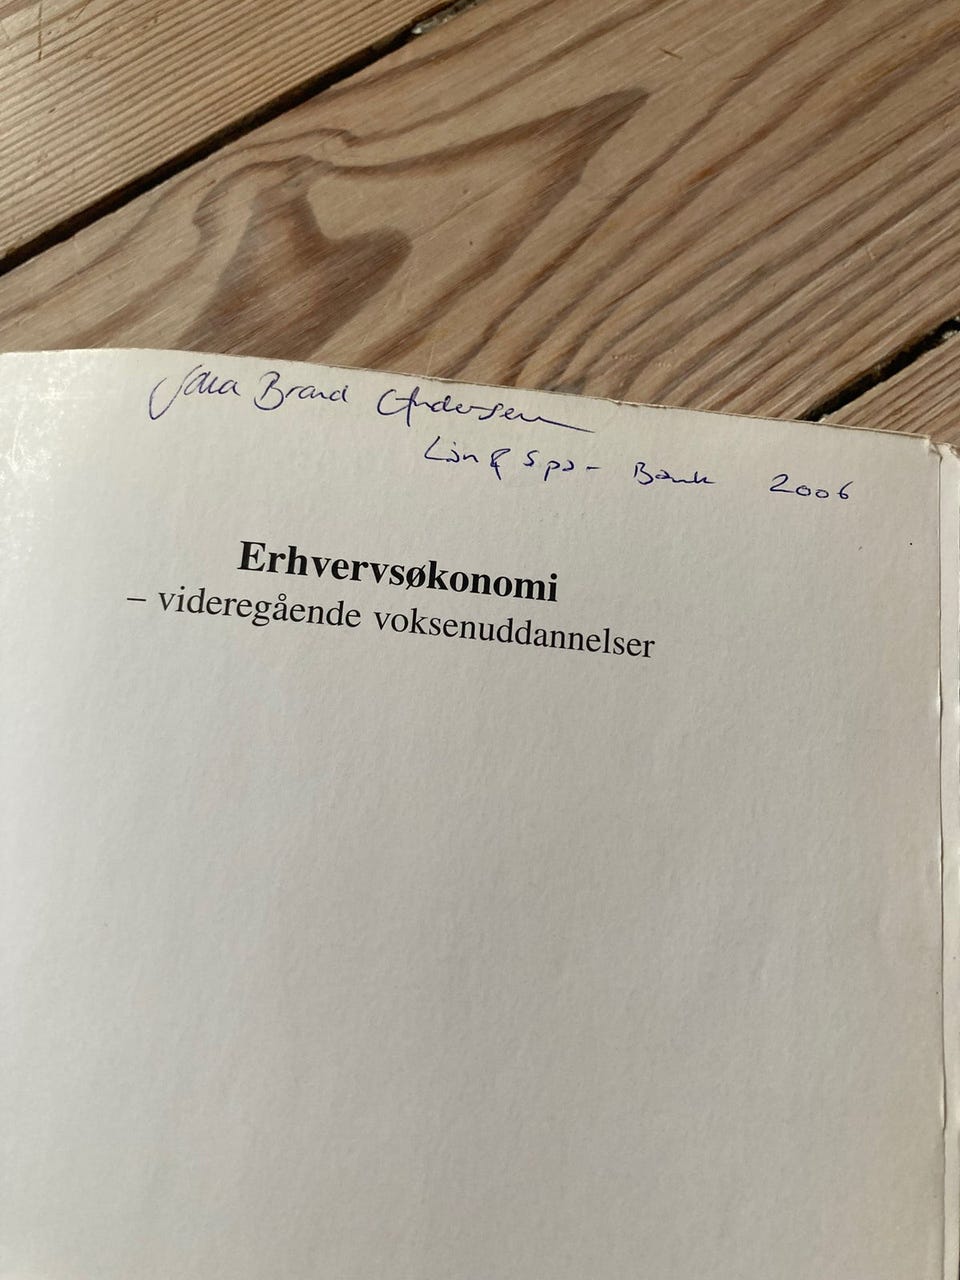 Brand Andersen
Lån & Spar Bank 2006
Erhvervsøkonomi
– videregående voksenuddannelser